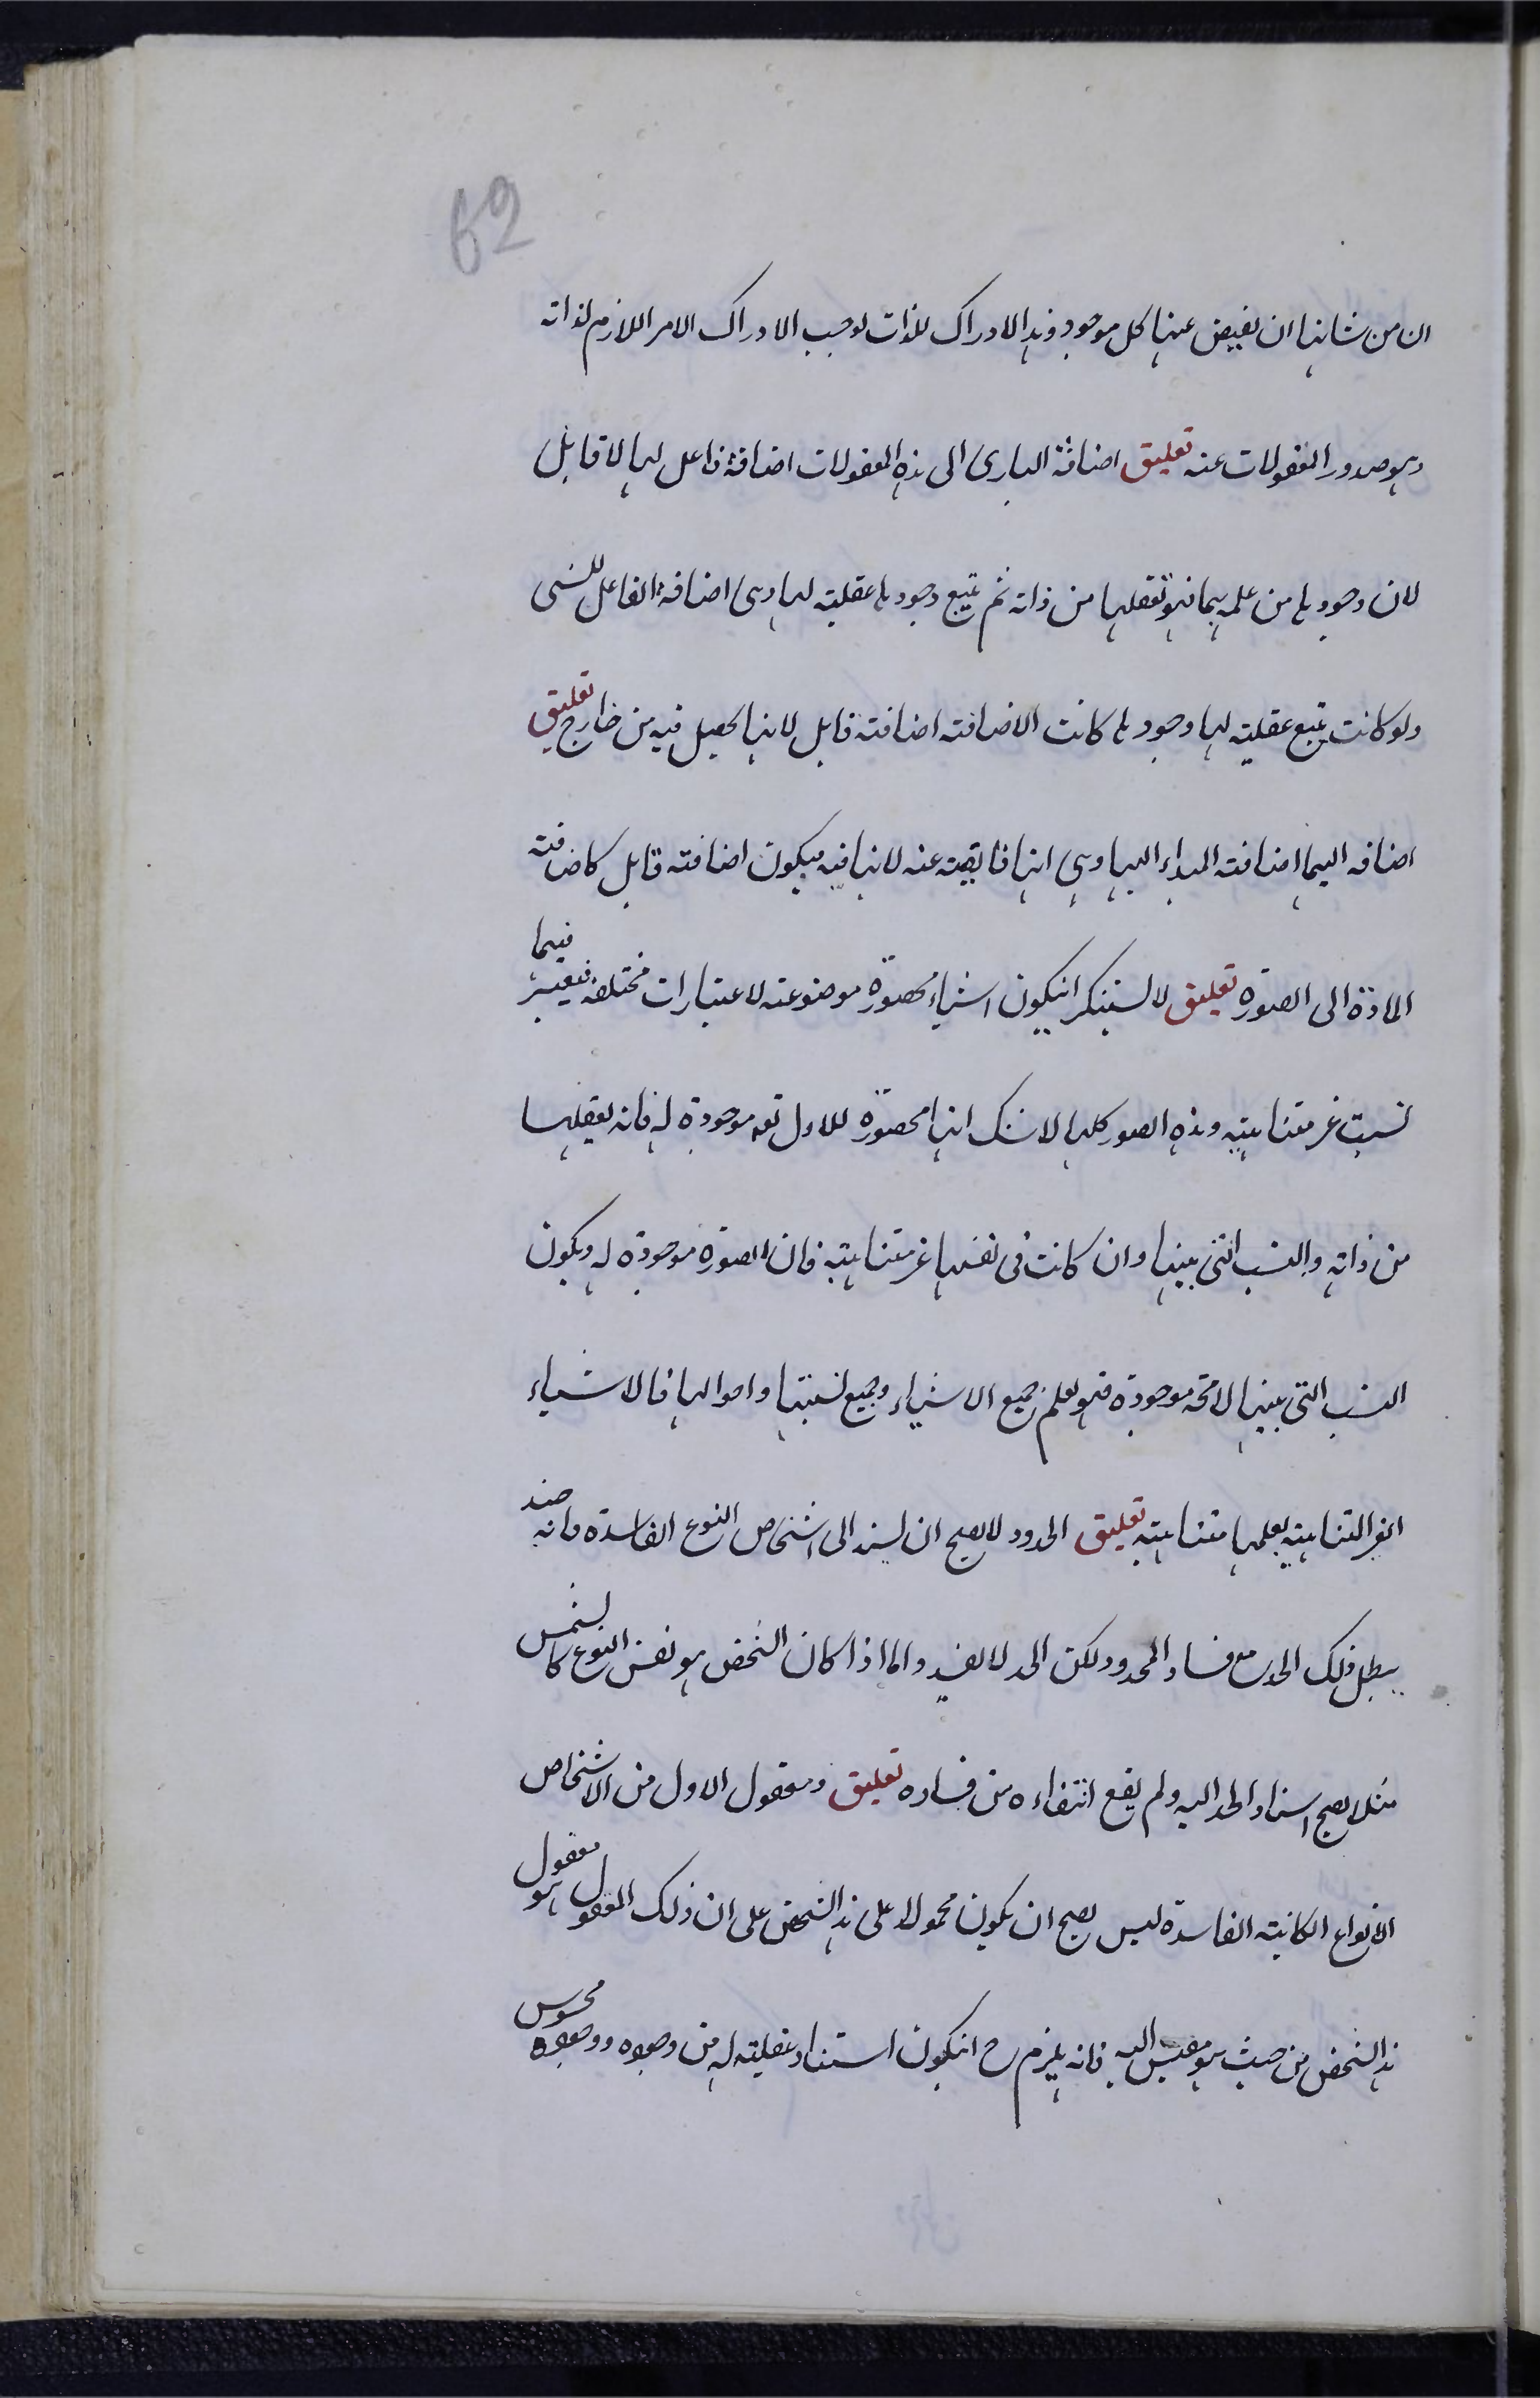 62
ان من شانها ان يفيض عنها كل موجود وهذا الادراك للذات يوجب الادراك الامر اللازم لذاته
وهو صدور المعقولات عنه تعليق اضافة البارى الى هذه المعقولات اضافة فاعل لها لا قابل
لان وجودها من علمه بها فهو تعقلها من ذاته ثم تتبع وجودها عقليته لها وهى اضافة الفاعل للشى
ولو كانت تتبع عقليته لها وجودها كانت الاضافته اضافته قابل لانها تحصل فيه من خارج تعليق
اضافه اليها اضافته المبداء اليها وهى انها فايضته عنه لانها فيه فيكون اضافته قابل كاضافته
المادة الى الصورة تعليق لا يستنكر انيكون اشياء محصورة موضوعته لاعتبارات مختلفه فيقع فيما
نسبت غير متناهيته وهذه الصور كلها لا شك انها محصورة للاول تعه موجودة له فانه يعقلها
من ذاته والنسب التى بينها وان كانت فى نفسها غير متناهيته فان الصورة موجودة له ويكون
النسب التى بينها لا محه موجودة فهو يعلم جميع الاشياء وجميع نسبتها واحوالها فالاشياء
الغير المتناهيته يعلمها متناهيته تعليق الحدود لا يصح ان يسند الى اشخاص النوع الفاسدة فانه حند
يبطل ذلك الحد مع فساد المحدود لكن الحد لا يفسد واما اذا كان الشخص هو نفس النوع كالشمس
مثلا يصح اسناد الحد اليه ولم يقع انتفاءه من فساده تعليق ومعقول الاول من الاشخاص
الانواع الكانيته الفاسدة ليس يصح ان يكون محمولا على هذا الشخص على ان ذلك المعقول هو معقول
هذا الشخص من حيث هو مقيس اليه فانه يلزم ح انيكون استناد عقليته له من وجوده ووجوده محسوس